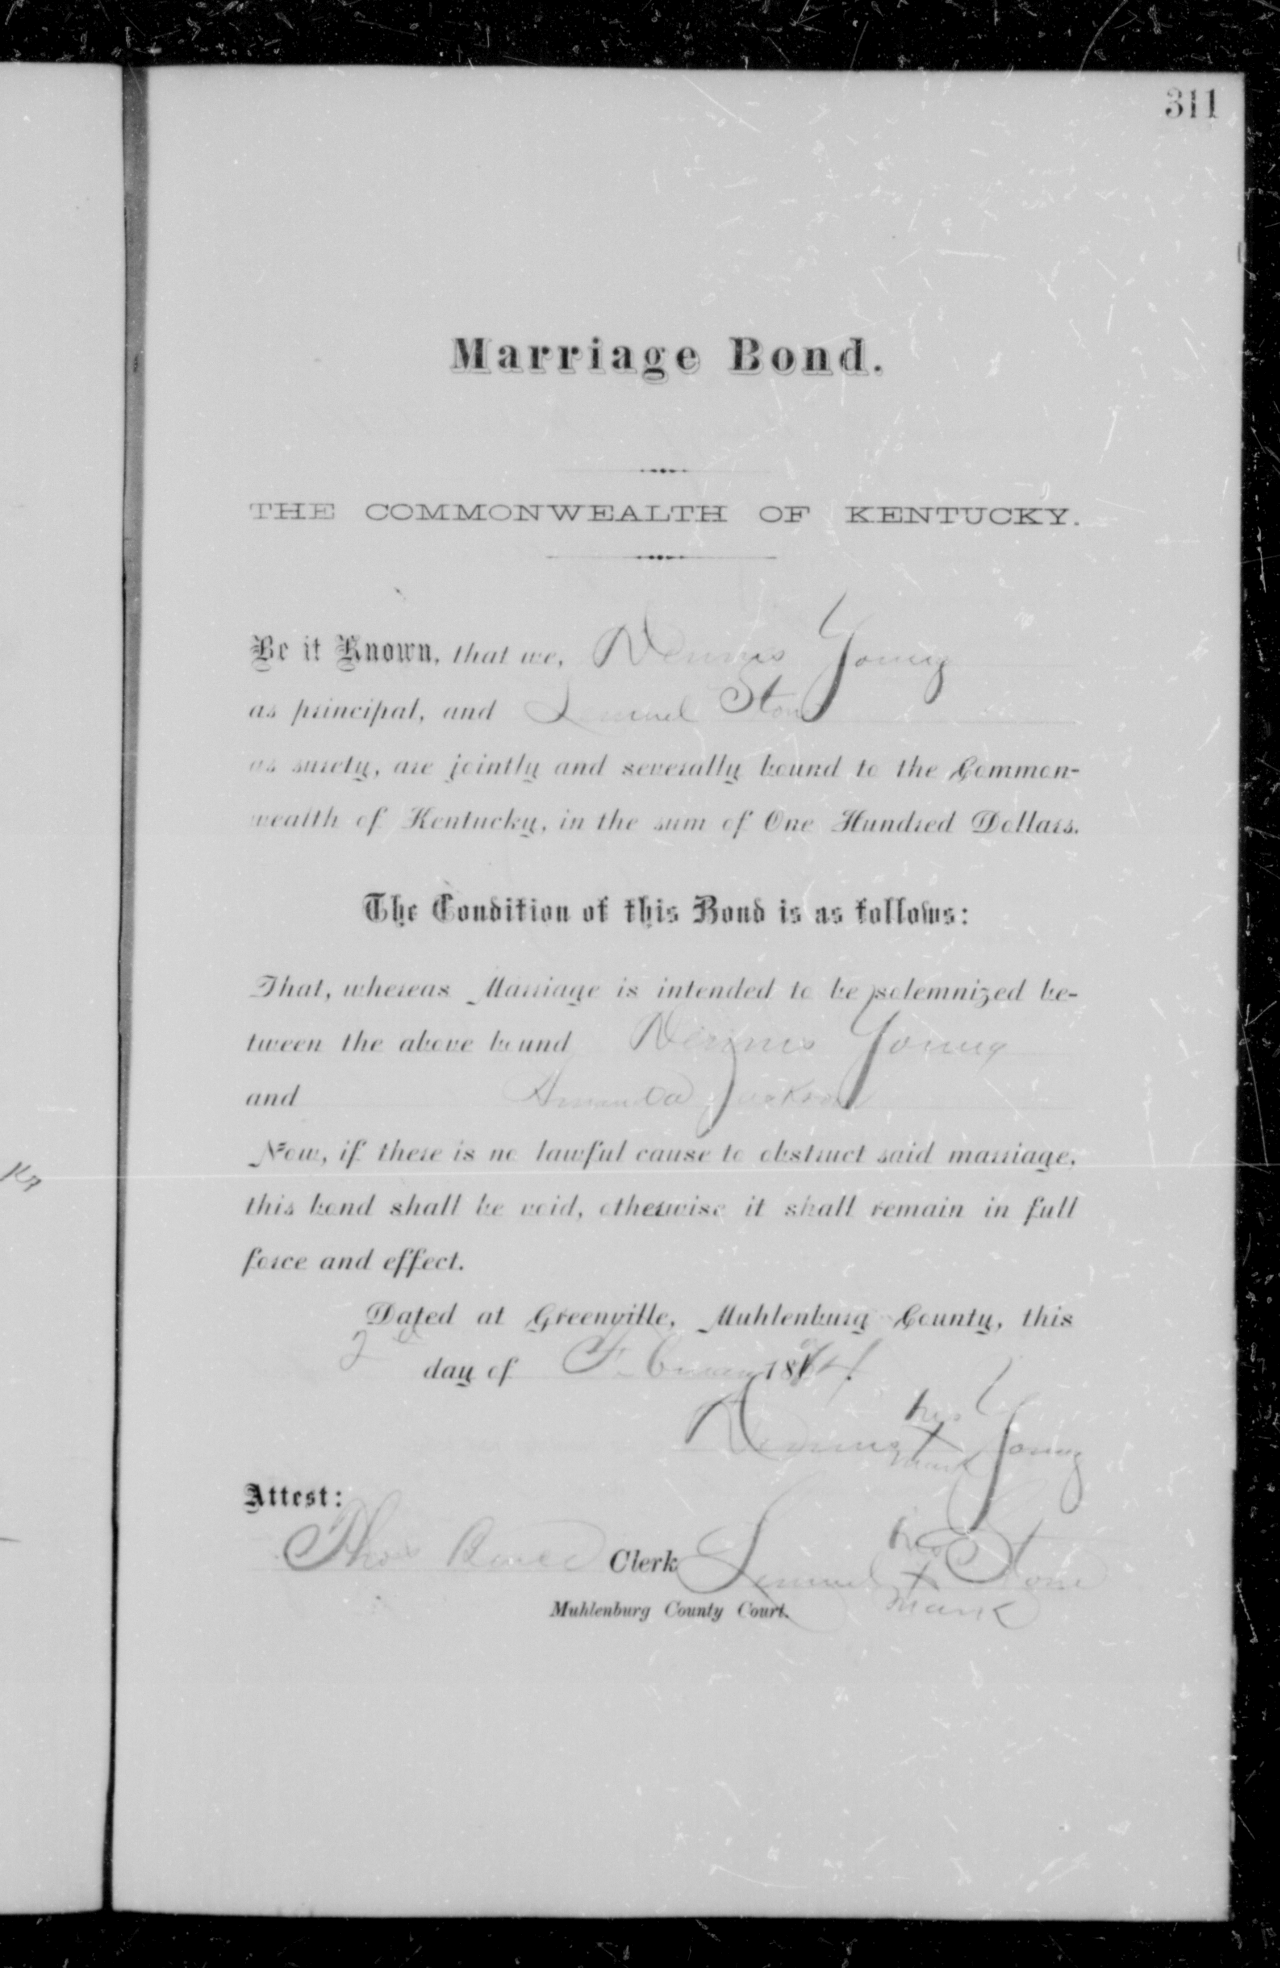 311
Marriage Bond.
THE COMMONWEALTH OF KENTUCKY.
Be it Known, that we, Dennis Young
as principal, and Lemuel Stone
as surety, are jointly and severally bound to the Common-
wealth of Kentucky, in the sum of One Hundred Dollars.
The Condition of this Bond is as follows:
That, whereas Marriage is intended to be solemnized be-
tween the above bound Dennis Young
and Amanda Jackson
Now, if there is no lawful cause to obstruct said marriage,
this bond shall be void, otherwise it shall remain in full
force and effect.
Dated at Greenville, Muhlenburg County, this
2d day of February 18
his
Dennis X Young
mark
Attest:
Thos Clerk
his
Lemuel X Stone
mark
Muhlenburg County Court.